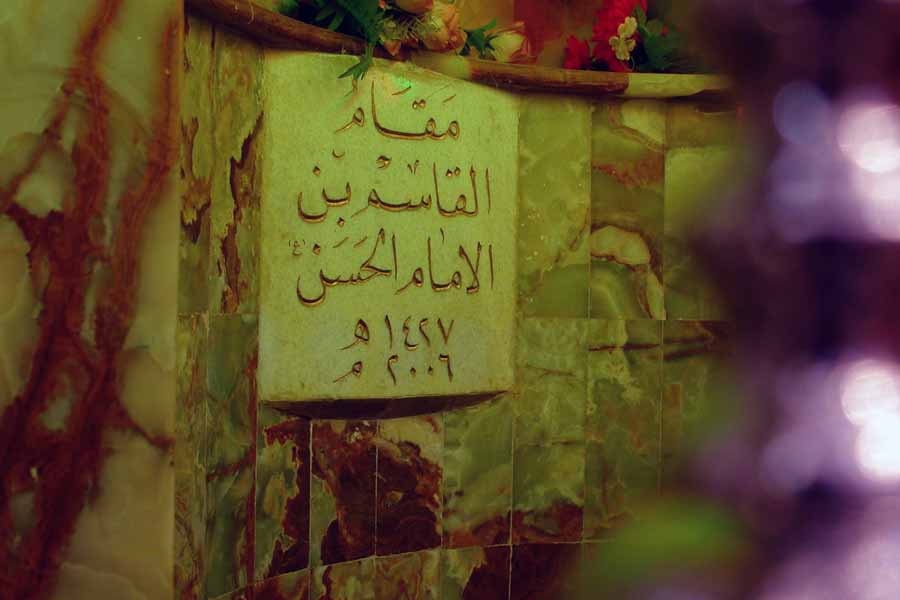 مقام
القاسم بن
الامام الحسن (ع)
١٤٢٧ هـ
٢٠٠٦ م